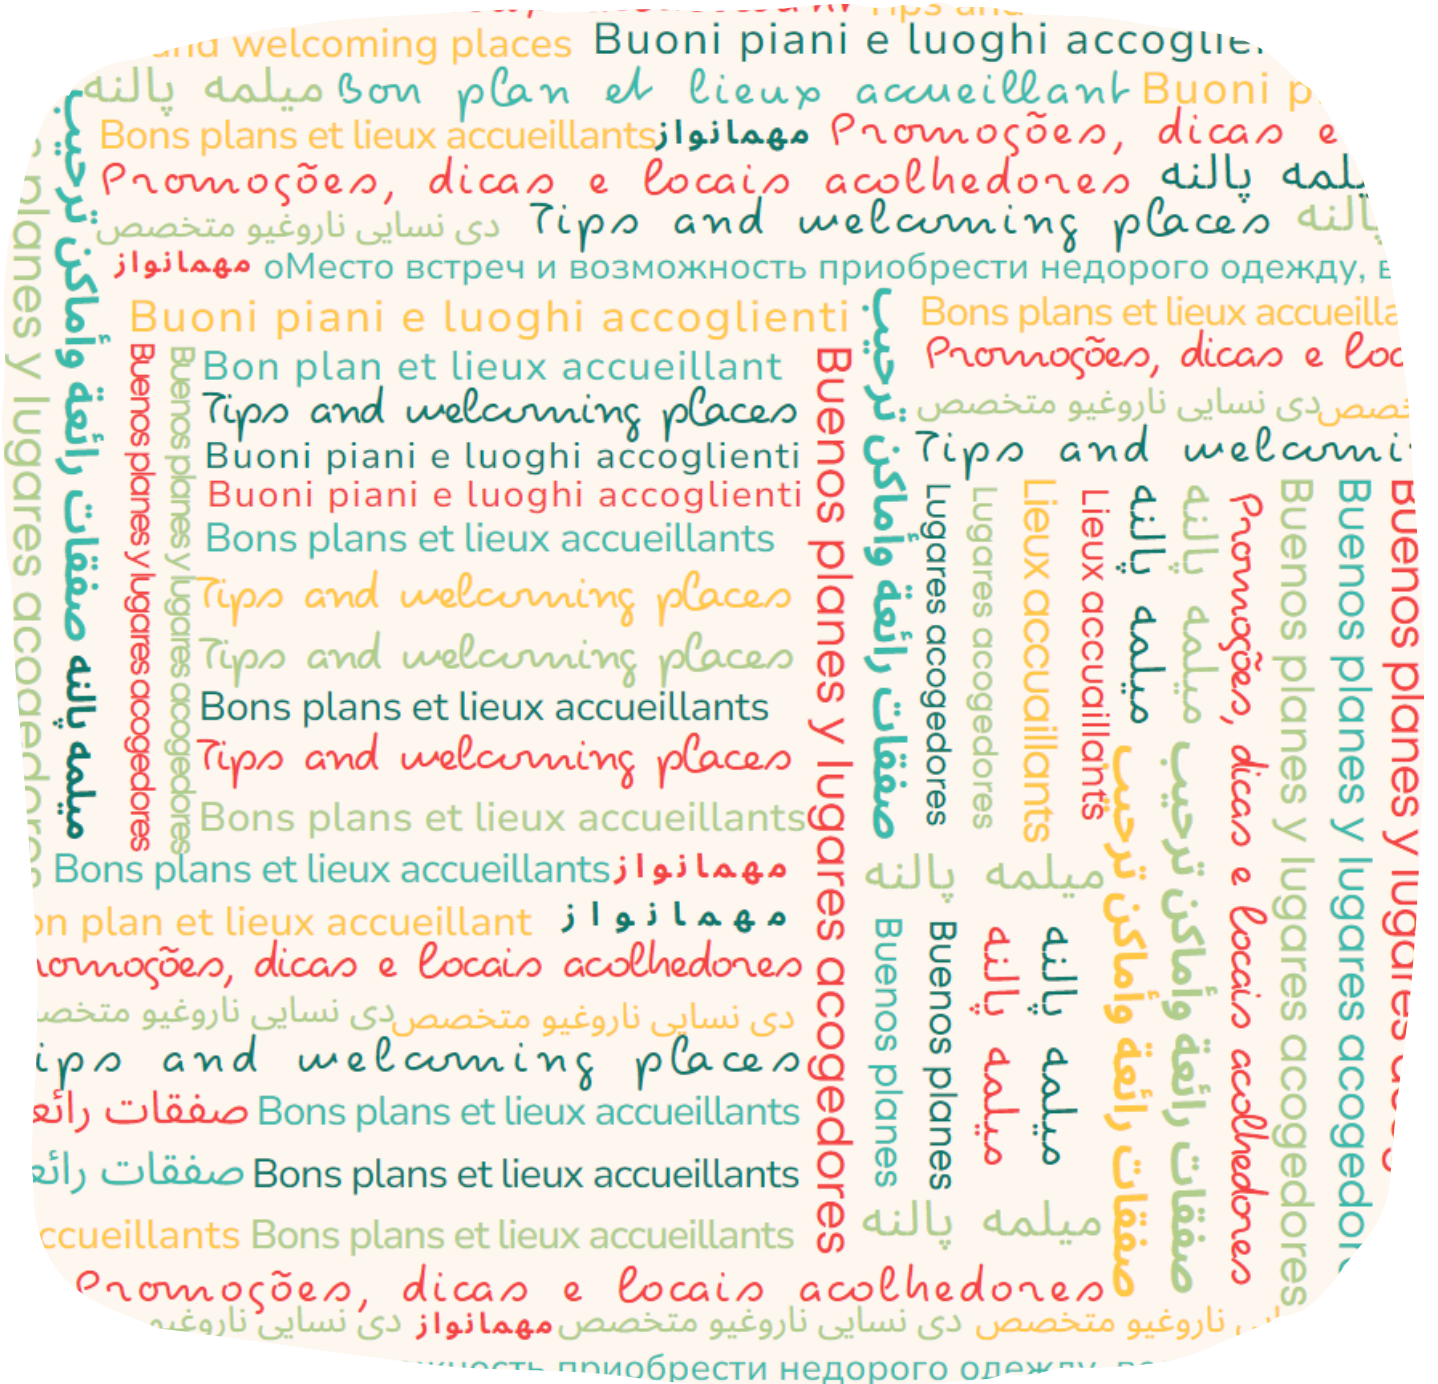 and welcoming places Buoni piani e luoghi
میلمه پالنه Bon plan et lieux accueillant Buoni
Bons plans et lieux accueillants مهمانواز Promoções, dicas e
Promoções, dicas e locais acolhedores پالنه
دی نسایی ناروغیو متخصص Tips and welcoming places پالنه
مهمانواز оМесто встреч и возможность приобрести недорого одежду, в
Buoni piani e luoghi accoglienti
Bons plans et lieux
Bon plan et lieux accueillant
Promoções, dicas e
Tips and welcoming places
دی نسایی ناروغیو متخصص
Buoni piani e luoghi accoglienti
Tips and
Buoni piani e luoghi accoglienti
Bons plans et lieux accueillants
Tips and welcoming places
Tips and welcoming places
Bons plans et lieux accueillants
Tips and welcoming places
Bons plans et lieux accueillants
Bons plans et lieux accueillants مهمانواز
plan et lieux accueillant مهمانواز
dicas e locais acolhedores
دی نسایی ناروغیو
دی نسایی ناروغیو متخصص
and welcoming places
صفقات Bons plans et lieux accueillants
صفقات Bons plans et lieux accueillants
Bons plans et lieux accueillants
Promoções, dicas e locais acolhedores
دی نسایی مهمانواز دی نسایی ناروغیو متخصص ناروغیو متخصص
приобрести недорого
planes y lugares
صفقات رائعة وأماكن ترحيب
میلمه پالنه
Buenos planes y lugares acogedores
Buenos planes y lugares acogedores
Buenos planes y lugares acogedores
صفقات رائعة وأماكن ترحيب
Lugares acogedores
Lugares acogedores
Lieux accuaillants
Lieux accuaillants
میلمه پالنه
میلمه پالنه
Promoções, dicas e locais acolhedores
Buenos planes y lugares acogedores
Buenos planes y lugares
Buenos planes y lugares
میلمه پالنه
Buenos planes
Buenos planes
میلمه پالنه
میلمه پالنه
صفقات رائعة وأماكن ترحيب
صفقات رائعة وأماكن ترحيب
میلمه پالنه